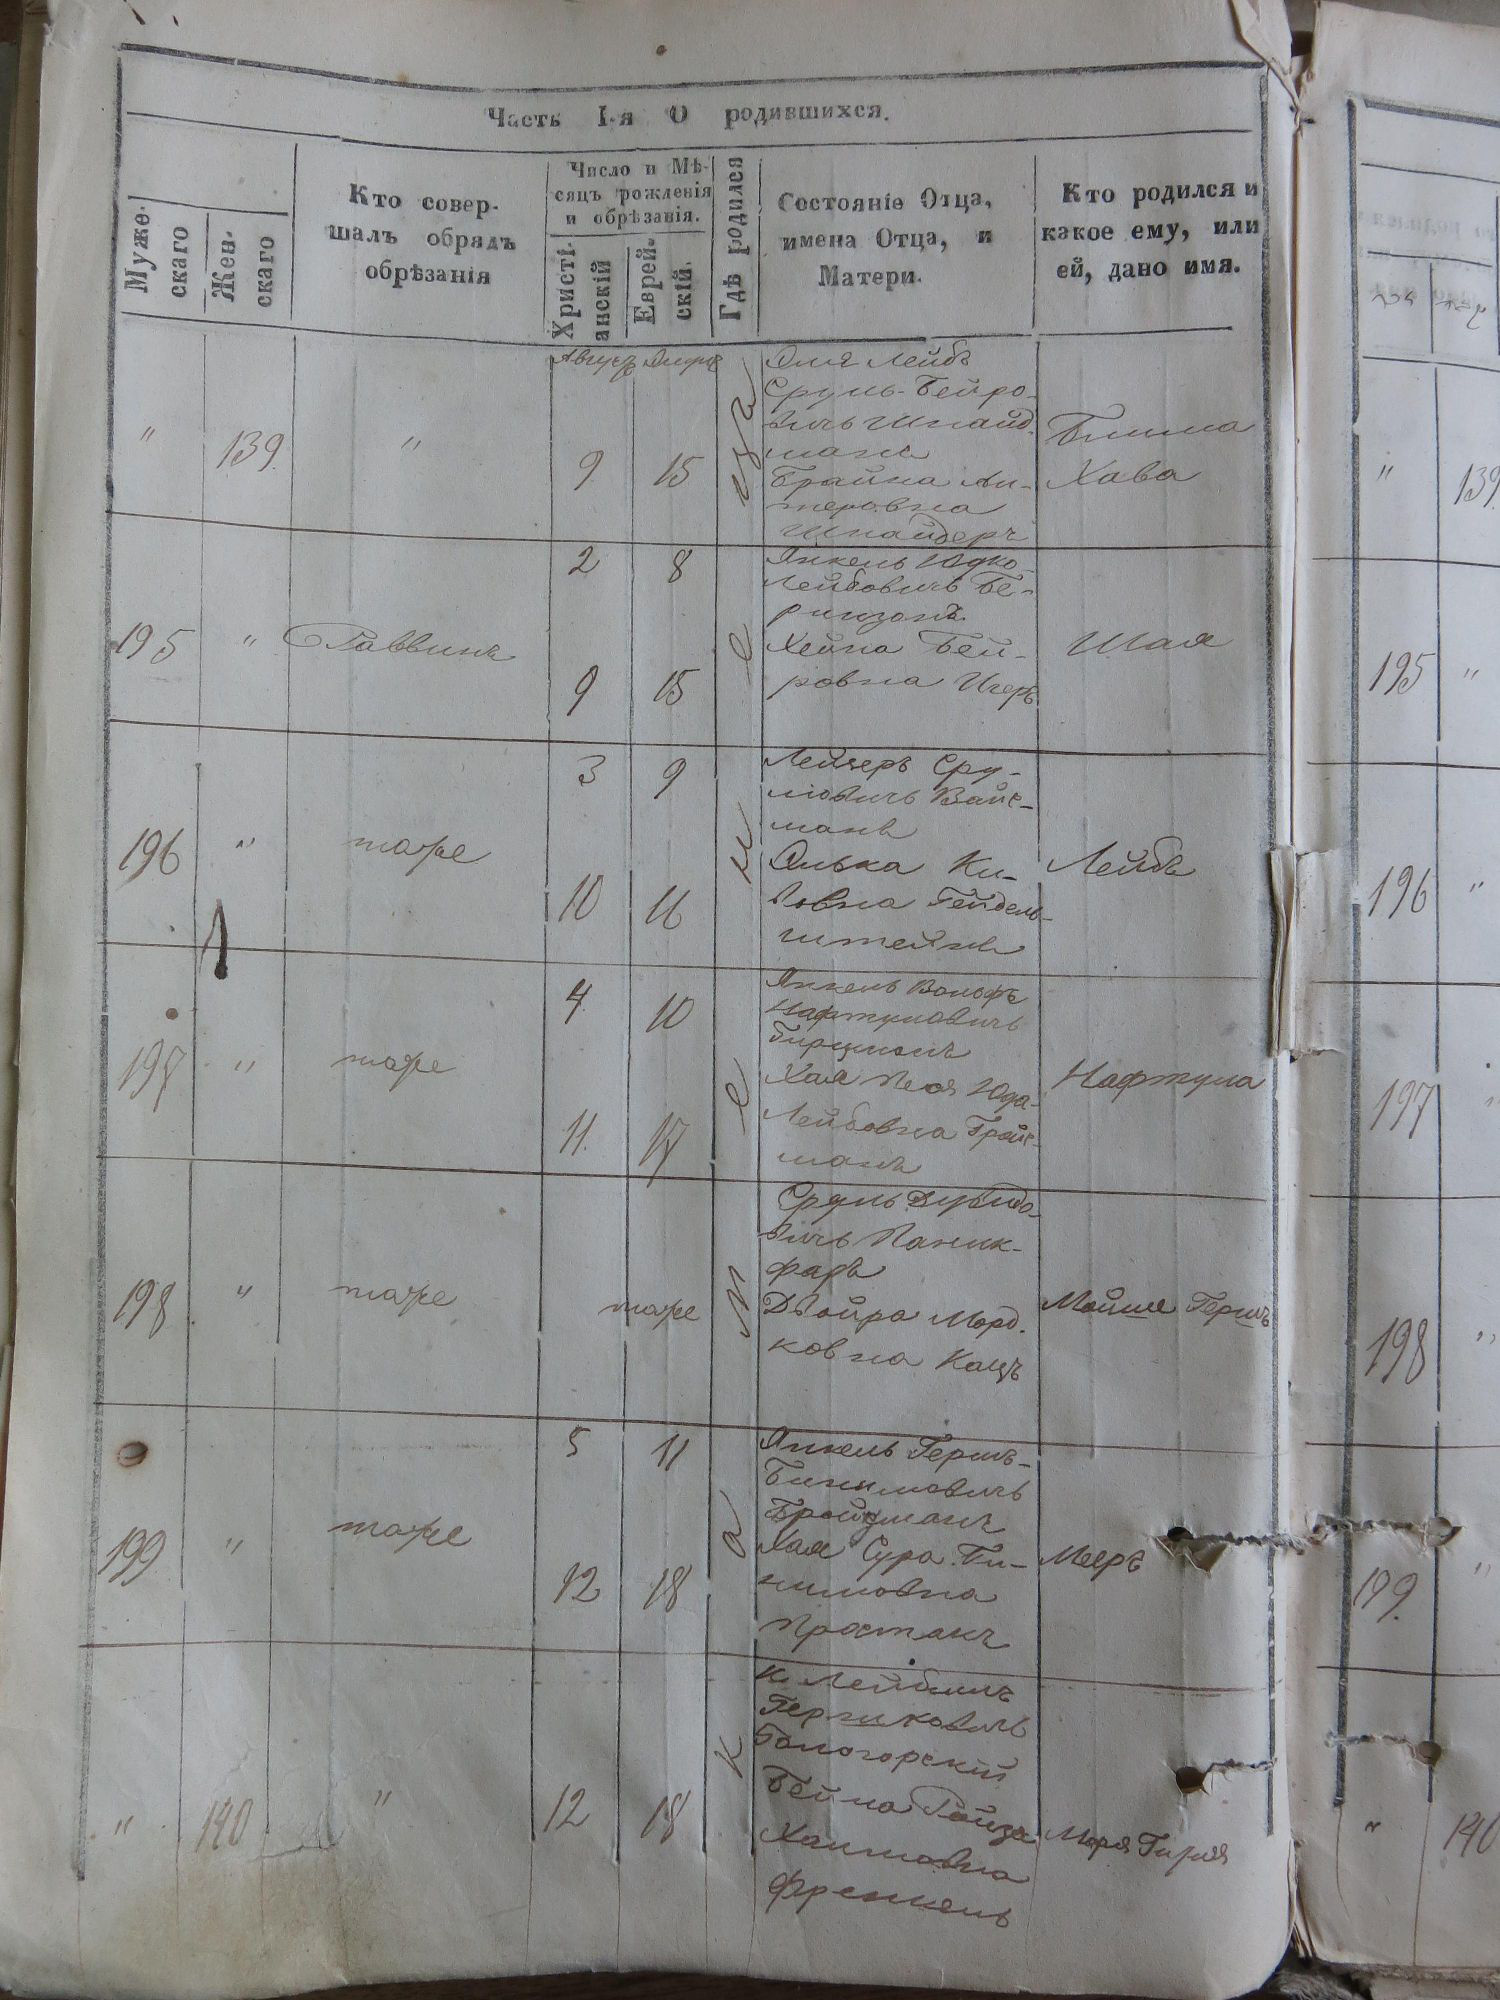 Часть I-я О родившихся.
Муже-
скаго
Жен-
скаго
Кто совер-
шалъ обрядъ
обрѣзанія
Число и Мѣ-
сяцъ рожденія
и обрѣзанія.
Христі-
анскій
Еврей-
скій.
Гдѣ родился
Состояніе Отца,
имена Отца, и
Матери.
Кто родился и
какое ему, или
ей, дано имя.
Августъ
" 139. " 9 15
Лейбъ
Сруль-Бейро-
вичъ Шнайд-
манъ
Брайна Ал-
теровна
Шнайдеръ
Блима
Хава
195 " Раввинъ
2 8
9 15
Янкель Юдко-
Лейбовичъ Бе-
ринзонъ
Хейна Бей-
ровна
Шая
196 " тоже
3 9
10 16
Лейзеръ Сру-
левичъ Вайс-
манъ
Элька Ки-
вовна Гейдель-
штейнъ
Лейбъ
197 " тоже
4 10
11. 17
Янкель Вольфъ
Нафтуловичъ
Хая Песя Юда-
Лейбовна Гройс-
манъ
Нафтула
198 " тоже
тоже
Сруль Дувидо-
вичъ
Двойра Морд-
ковна Кацъ
Мойше Гершъ
199 " тоже
5 11
12 18
Янкель Гершъ-
Бройтманъ
Хая Сура Би-
нимовна
Простакъ
Мееръ
" 140 " 12 18
Лейбишъ
Гершковичъ
Бологорскій
Бейла Ройза
Хаимовна
Френкель
139
195 "
196 "
197 "
198 "
199. "
" 140